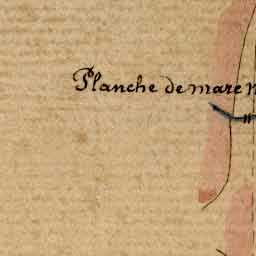 Planche de mare